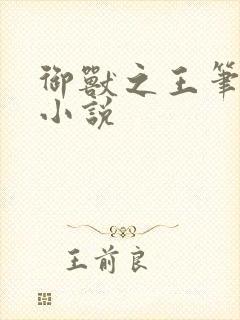 御獸之王筆
小說
王前良